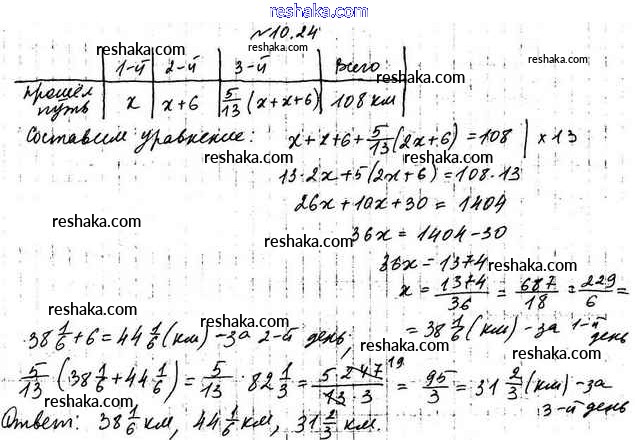 reshaka.com
№10.24
reshaka.com reshaka.com reshaka.com
1-й 2-й 3-й Всего
прошёл путь x x+6 5/13 (x+x+6) 108 км
reshaka.com
Составим уравнение: x+x+6+5/13(2x+6)=108 | x13
reshaka.com reshaka.com
13·2x+5(2x+6)=108·13
26x+10x+30=1404
reshaka.com reshaka.com
36x=1404-30
reshaka.com
36x=1374
reshaka.com
x=1374/36=687/18=229/6=
reshaka.com reshaka.com
=38 1/6 (км) - за 1-й день
38 1/6+6=44 1/6 (км) - за 2-й день;
reshaka.com reshaka.com
5/13 (38 1/6+44 1/6)=5/13·82 1/3=5 247 19/13·3=95/3=31 2/3 (км) - за 3-й день
reshaka.com reshaka.com
Ответ: 38 1/6 км, 44 1/6 км, 31 2/3 км.
reshaka.com